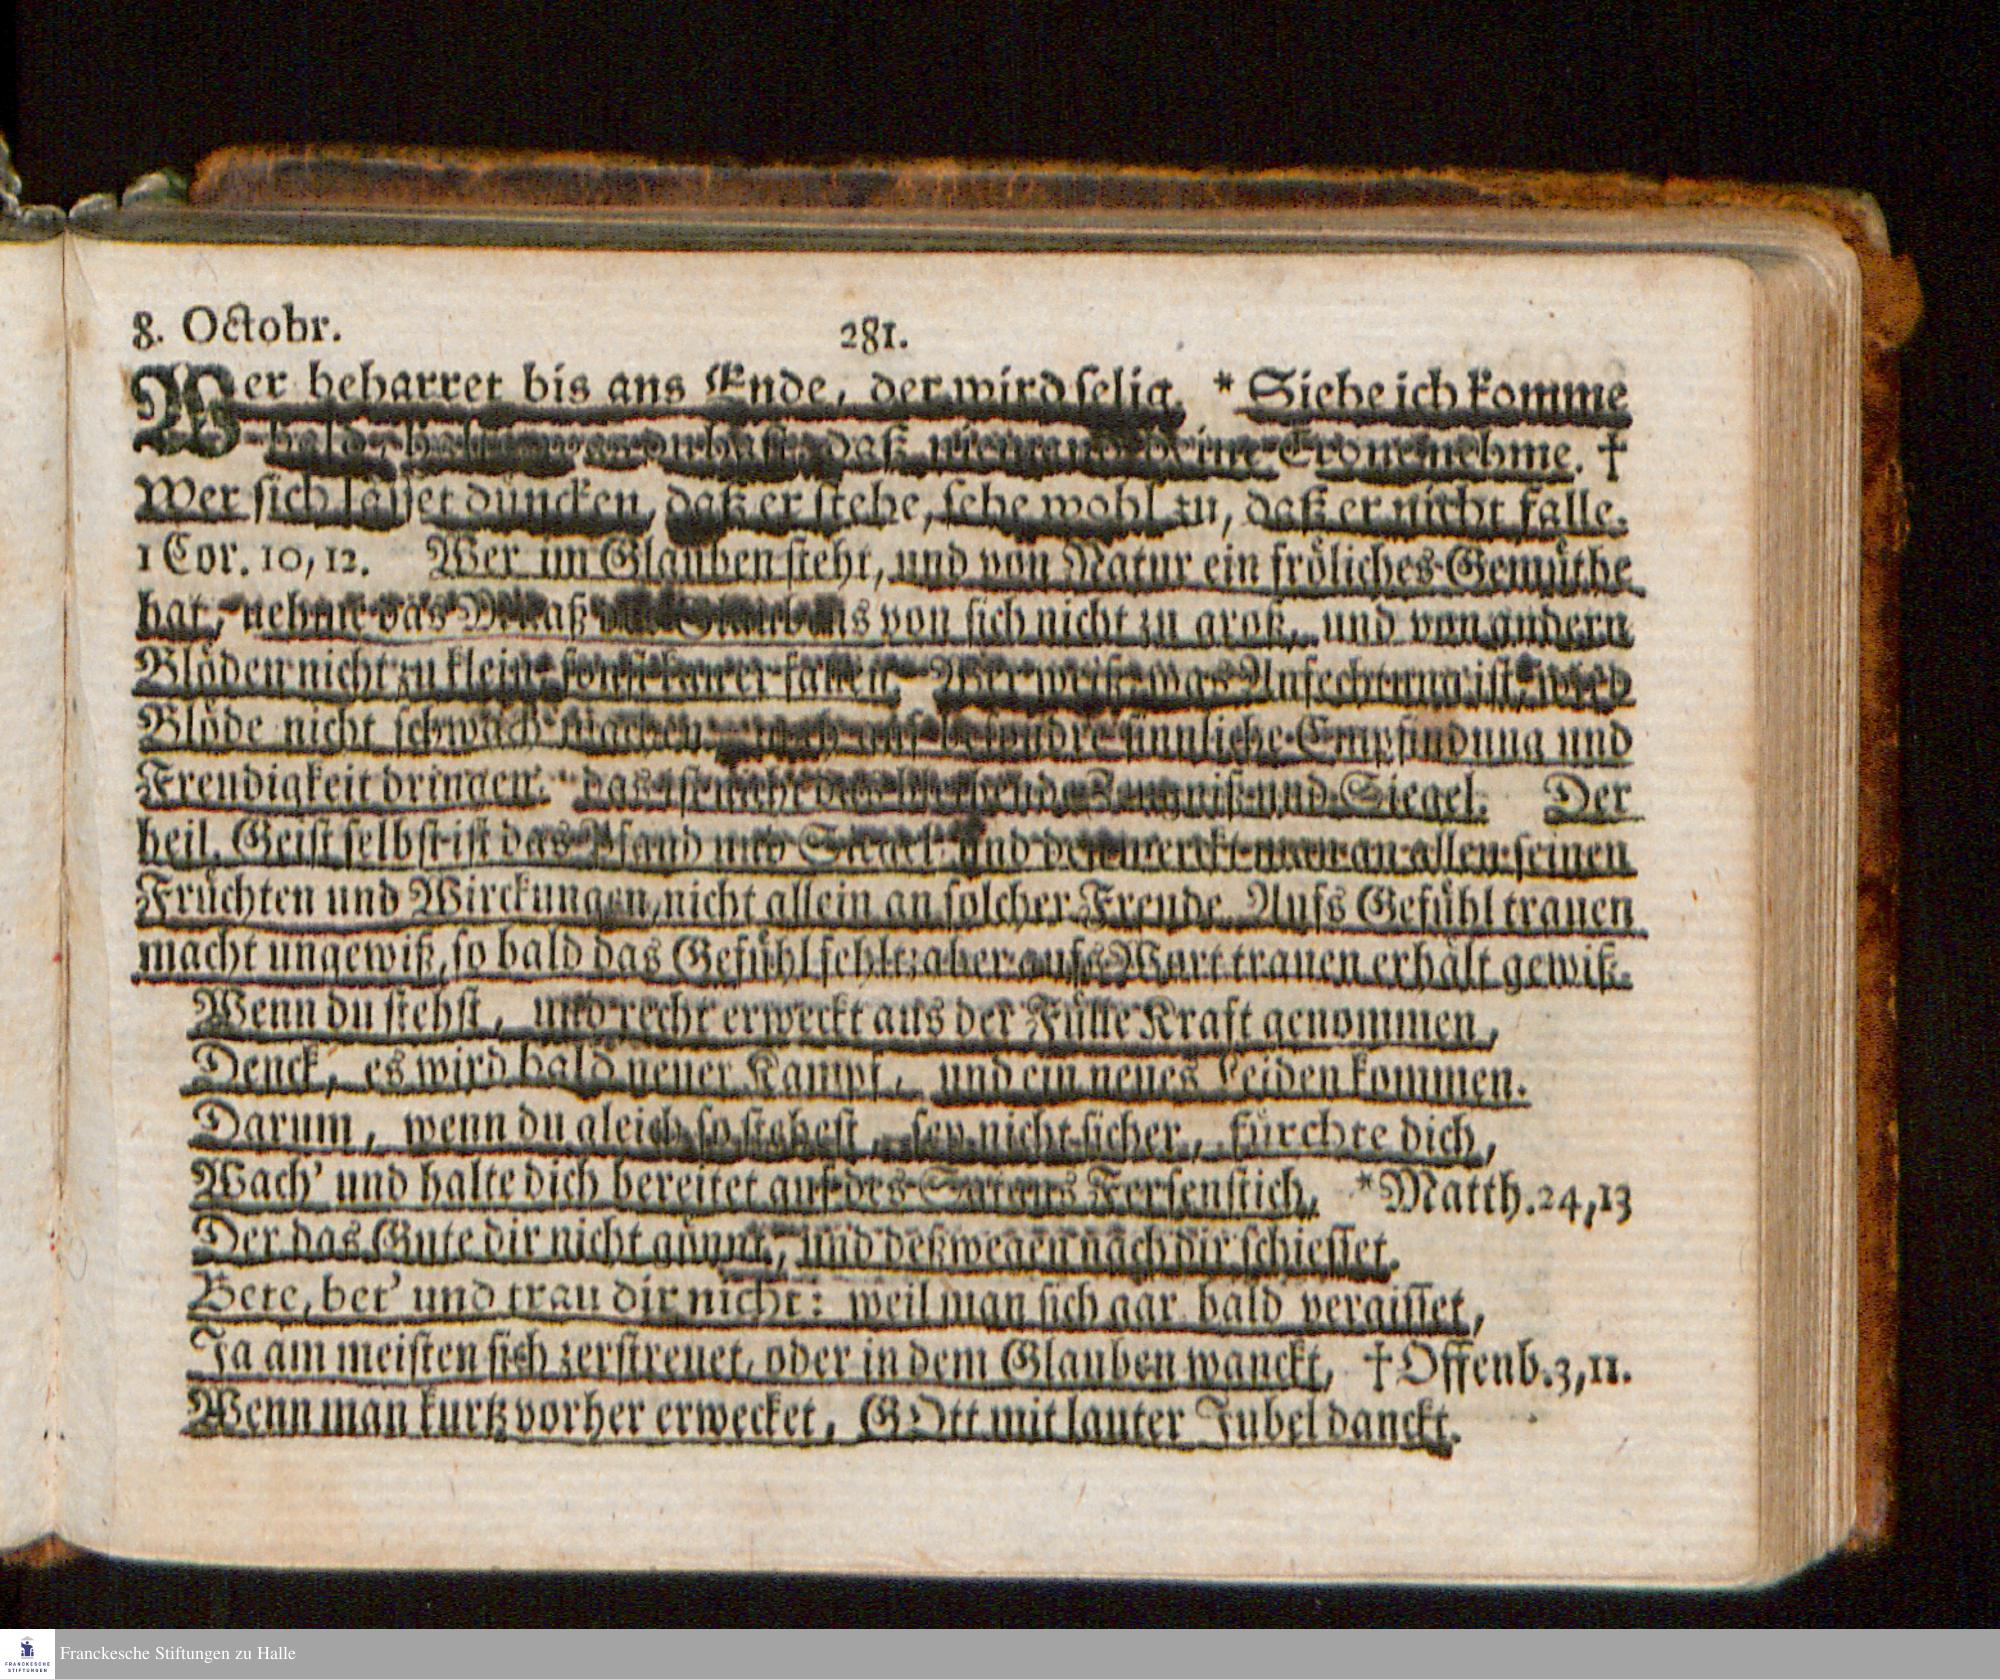 8. Octobr. 281.
Wer beharret bis ans Ende, der wird selig. * Siehe ich komme
bald, halt was du hast, daß niemand deine Crone nehme. †
Wer sich lässet düncken, daß er stehe, sehe wohl zu, daß er nicht falle.
1 Cor. 10, 12. Wer im Glauben steht, und von Natur ein fröliches Gemüthe
hat, nehme das Maaß des Glaubens von sich nicht zu groß, und von andern
Blöden nicht zu klein, sonst kan er fallen. Wer weiß was Anfechtung ist, wird
Blöde nicht schwach machen, noch auf besondre sinnliche Empfindung und
Freudigkeit dringen. das ist nicht das Zeugniß und Siegel. Der
heil. Geist selbst ist das Pfand und Siegel und den merckt man an allen seinen
Früchten und Wirckungen, nicht allein an solcher Freude. Aufs Gefühl trauen
macht ungewiß, so bald das Gefühl fehlt; aber aufs Wort trauen erhält gewiß.
Wenn du stehst, und recht erweckt aus der Fülle Kraft genommen,
Denck, es wird bald neuer Kampf, und ein neues Leiden kommen.
Darum, wenn du gleich so stehest, sey nicht sicher, fürchte dich,
Wach' und halte dich bereitet auf des Satans Fersenstich, * Matth. 24, 13
Der das Gute dir nicht gönnt, und deßwegen nach dir schiesset.
Bete, bet' und trau dir nicht: weil man sich gar bald vergisset,
Ja am meisten sich zerstreuet, oder in dem Glauben wanckt, † Offenb. 3, 11.
Wenn man kurtz vorher erwecket, GOtt mit lauter Jubel danckt.
FRANCKESCHE
STIFTUNGEN
Franckesche Stiftungen zu Halle